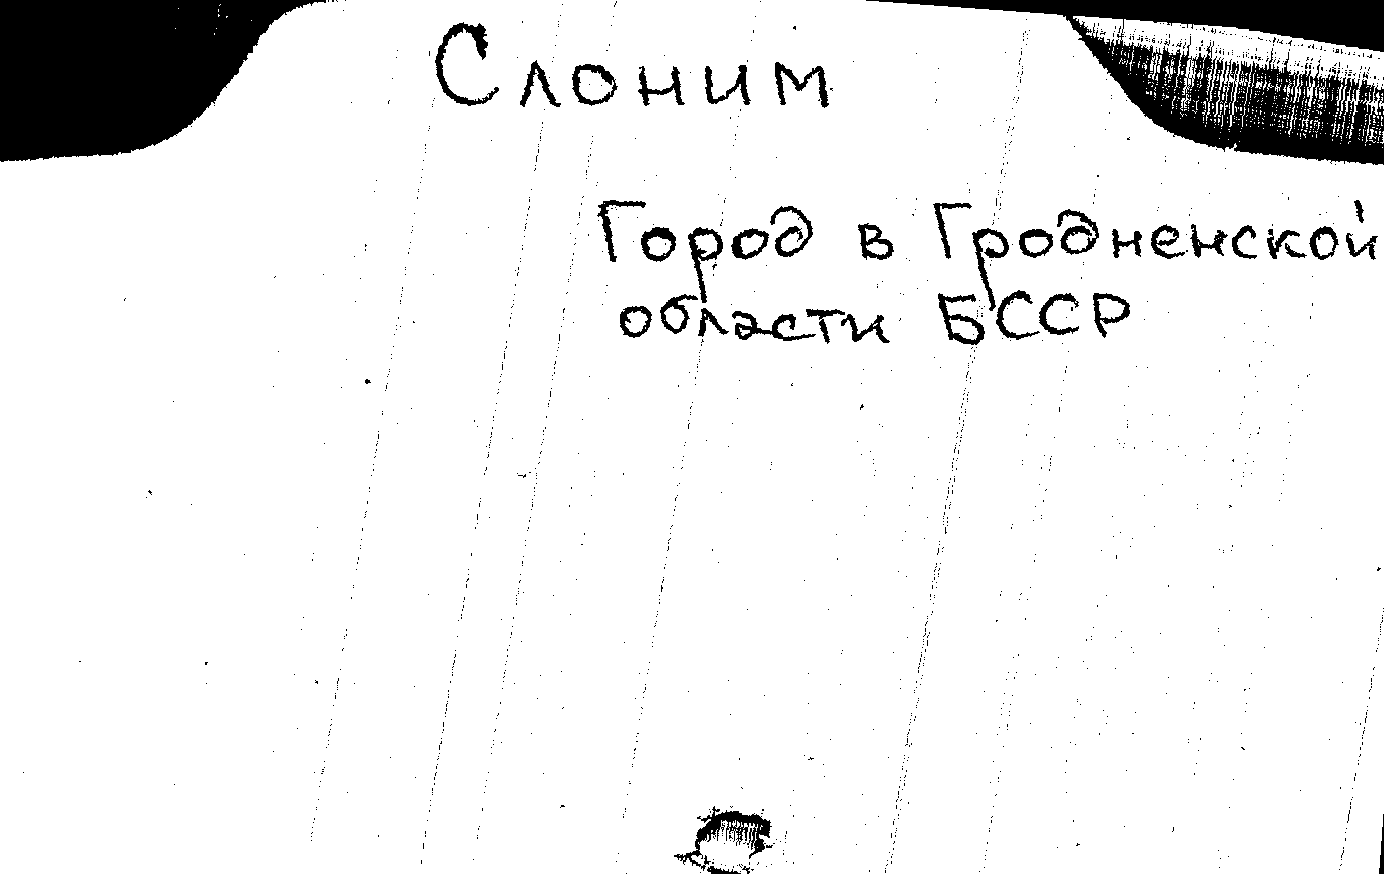 Слоним
Город в Гродненской
области БССР